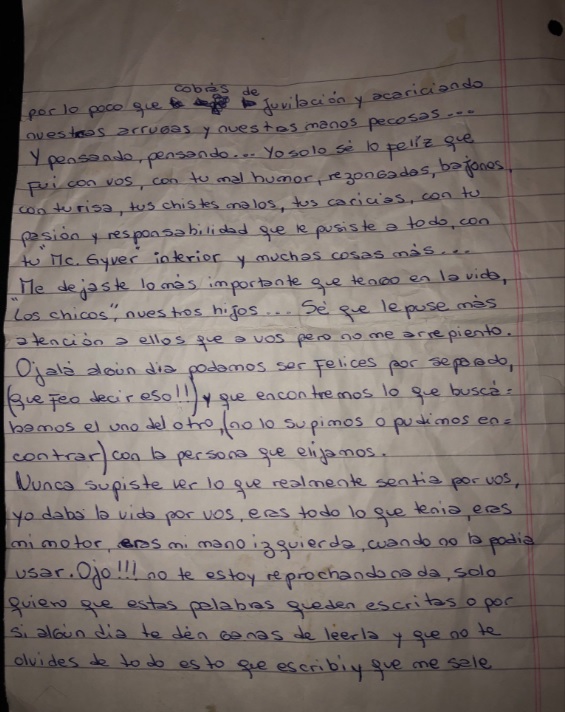 cobrás de
por lo poco que juvilación y acariciando
nuestras arrugas y nuestras manos pecosas....
Y pensando, pensando... Yo solo sé lo felíz que
fui con vos, con tu mal humor, rezongadas, bajones,
con tu risa, tus chistes malos, tus caricias, con tu
pasión y responsabilidad que le pusiste a todo, con
tu "Mc. Gyver" interior y muchas cosas más....
Me dejaste lo más importante que tengo en la vida,
"Los chicos", nuestros hijos.... Sé que le puse más
atención a ellos que a vos pero no me arrepiento.
Ojalá algún día podamos ser felices por separado,
(que feo decir eso!!) y que encontremos lo que buscá=
bamos el uno del otro, (no lo supimos o pudimos en=
contrar) con la persona que elijamos.
Nunca supiste ver lo que realmente sentia por vos,
yo daba la vida por vos, eras todo lo que tenia, eras
mi motor, eras mi mano izquierda, cuando no la podia
usar. Ojo!!! no te estoy reprochando nada, solo
quiero que estas palabras queden escritas o por
si algún dia te dén ganas de leerla y que no te
olvides de todo esto que escribi y que me sale